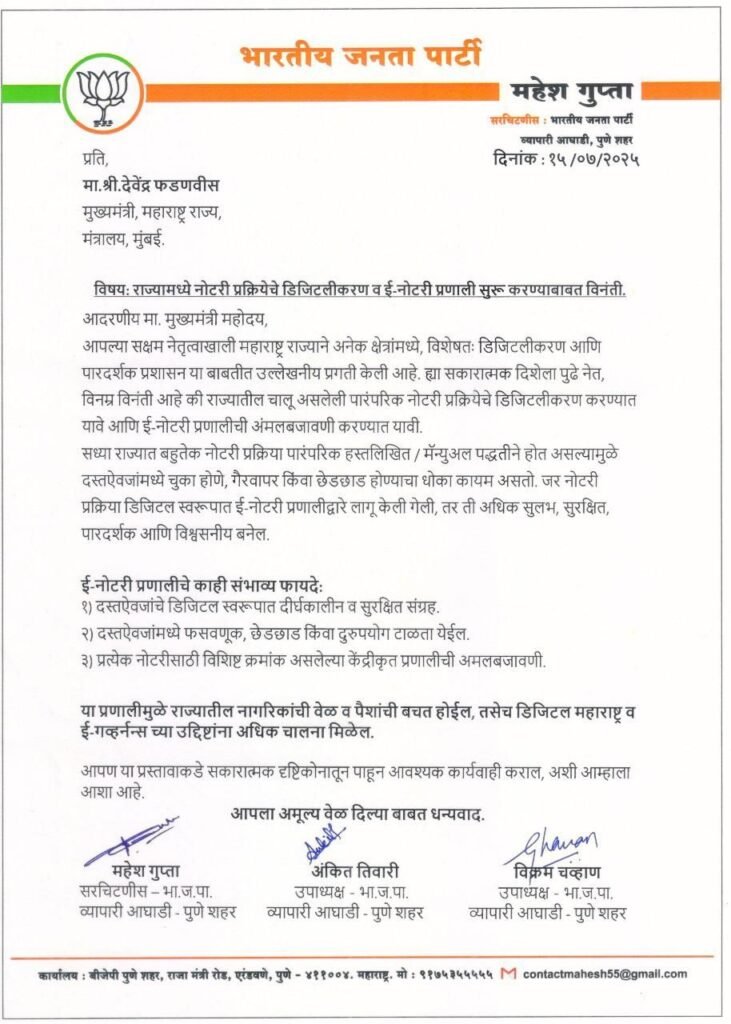 भारतीय जनता पार्टी
महेश गुप्ता
सरचिटणीस : भारतीय जनता पार्टी
व्यापारी आघाडी, पुणे शहर
दिनांक : १५/०७/२०२५
प्रति,
मा.श्री.देवेंद्र फडणवीस
मुख्यमंत्री, महाराष्ट्र राज्य,
मंत्रालय, मुंबई.
विषय: राज्यामध्ये नोटरी प्रक्रियेचे डिजिटलीकरण व ई-नोटरी प्रणाली सुरू करण्याबाबत विनंती.
आदरणीय मा. मुख्यमंत्री महोदय,
आपल्या सक्षम नेतृत्वाखाली महाराष्ट्र राज्याने अनेक क्षेत्रांमध्ये, विशेषतः डिजिटलीकरण आणि
पारदर्शक प्रशासन या बाबतीत उल्लेखनीय प्रगती केली आहे. ह्या सकारात्मक दिशेला पुढे नेत,
विनम्र विनंती आहे की राज्यातील चालू असलेली पारंपरिक नोटरी प्रक्रियेचे डिजिटलीकरण करण्यात
यावे आणि ई-नोटरी प्रणालीची अंमलबजावणी करण्यात यावी.
सध्या राज्यात बहुतेक नोटरी प्रक्रिया पारंपरिक हस्तलिखित / मॅन्युअल पद्धतीने होत असल्यामुळे
दस्तऐवजांमध्ये चुका होणे, गैरवापर किंवा छेडछाड होण्याचा धोका कायम असतो. जर नोटरी
प्रक्रिया डिजिटल स्वरूपात ई-नोटरी प्रणालीद्वारे लागू केली गेली, तर ती अधिक सुलभ, सुरक्षित,
पारदर्शक आणि विश्वसनीय बनेल.
ई-नोटरी प्रणालीचे काही संभाव्य फायदे:
१) दस्तऐवजांचे डिजिटल स्वरूपात दीर्घकालीन व सुरक्षित संग्रह.
२) दस्तऐवजांमध्ये फसवणूक, छेडछाड किंवा दुरुपयोग टाळता येईल.
३) प्रत्येक नोटरीसाठी विशिष्ट क्रमांक असलेल्या केंद्रीकृत प्रणालीची अमलबजावणी.
या प्रणालीमुळे राज्यातील नागरिकांची वेळ व पैशांची बचत होईल, तसेच डिजिटल महाराष्ट्र व
ई-गव्हर्नन्स च्या उद्दिष्टांना अधिक चालना मिळेल.
आपण या प्रस्तावाकडे सकारात्मक दृष्टिकोनातून पाहून आवश्यक कार्यवाही कराल, अशी आम्हाला
आशा आहे.
आपला अमूल्य वेळ दिल्या बाबत धन्यवाद.
महेश गुप्ता अंकित तिवारी विक्रम चव्हाण
सरचिटणीस – भा.ज.पा. उपाध्यक्ष - भा.ज.पा. उपाध्यक्ष - भा.ज.पा.
व्यापारी आघाडी - पुणे शहर व्यापारी आघाडी - पुणे शहर व्यापारी आघाडी - पुणे शहर
कार्यालय : बीजेपी पुणे शहर, राजा मंत्री रोड, एरंडवणे, पुणे - ४११००४. महाराष्ट्र. मो : ९१७५३५५५५५ contactmahesh55@gmail.com